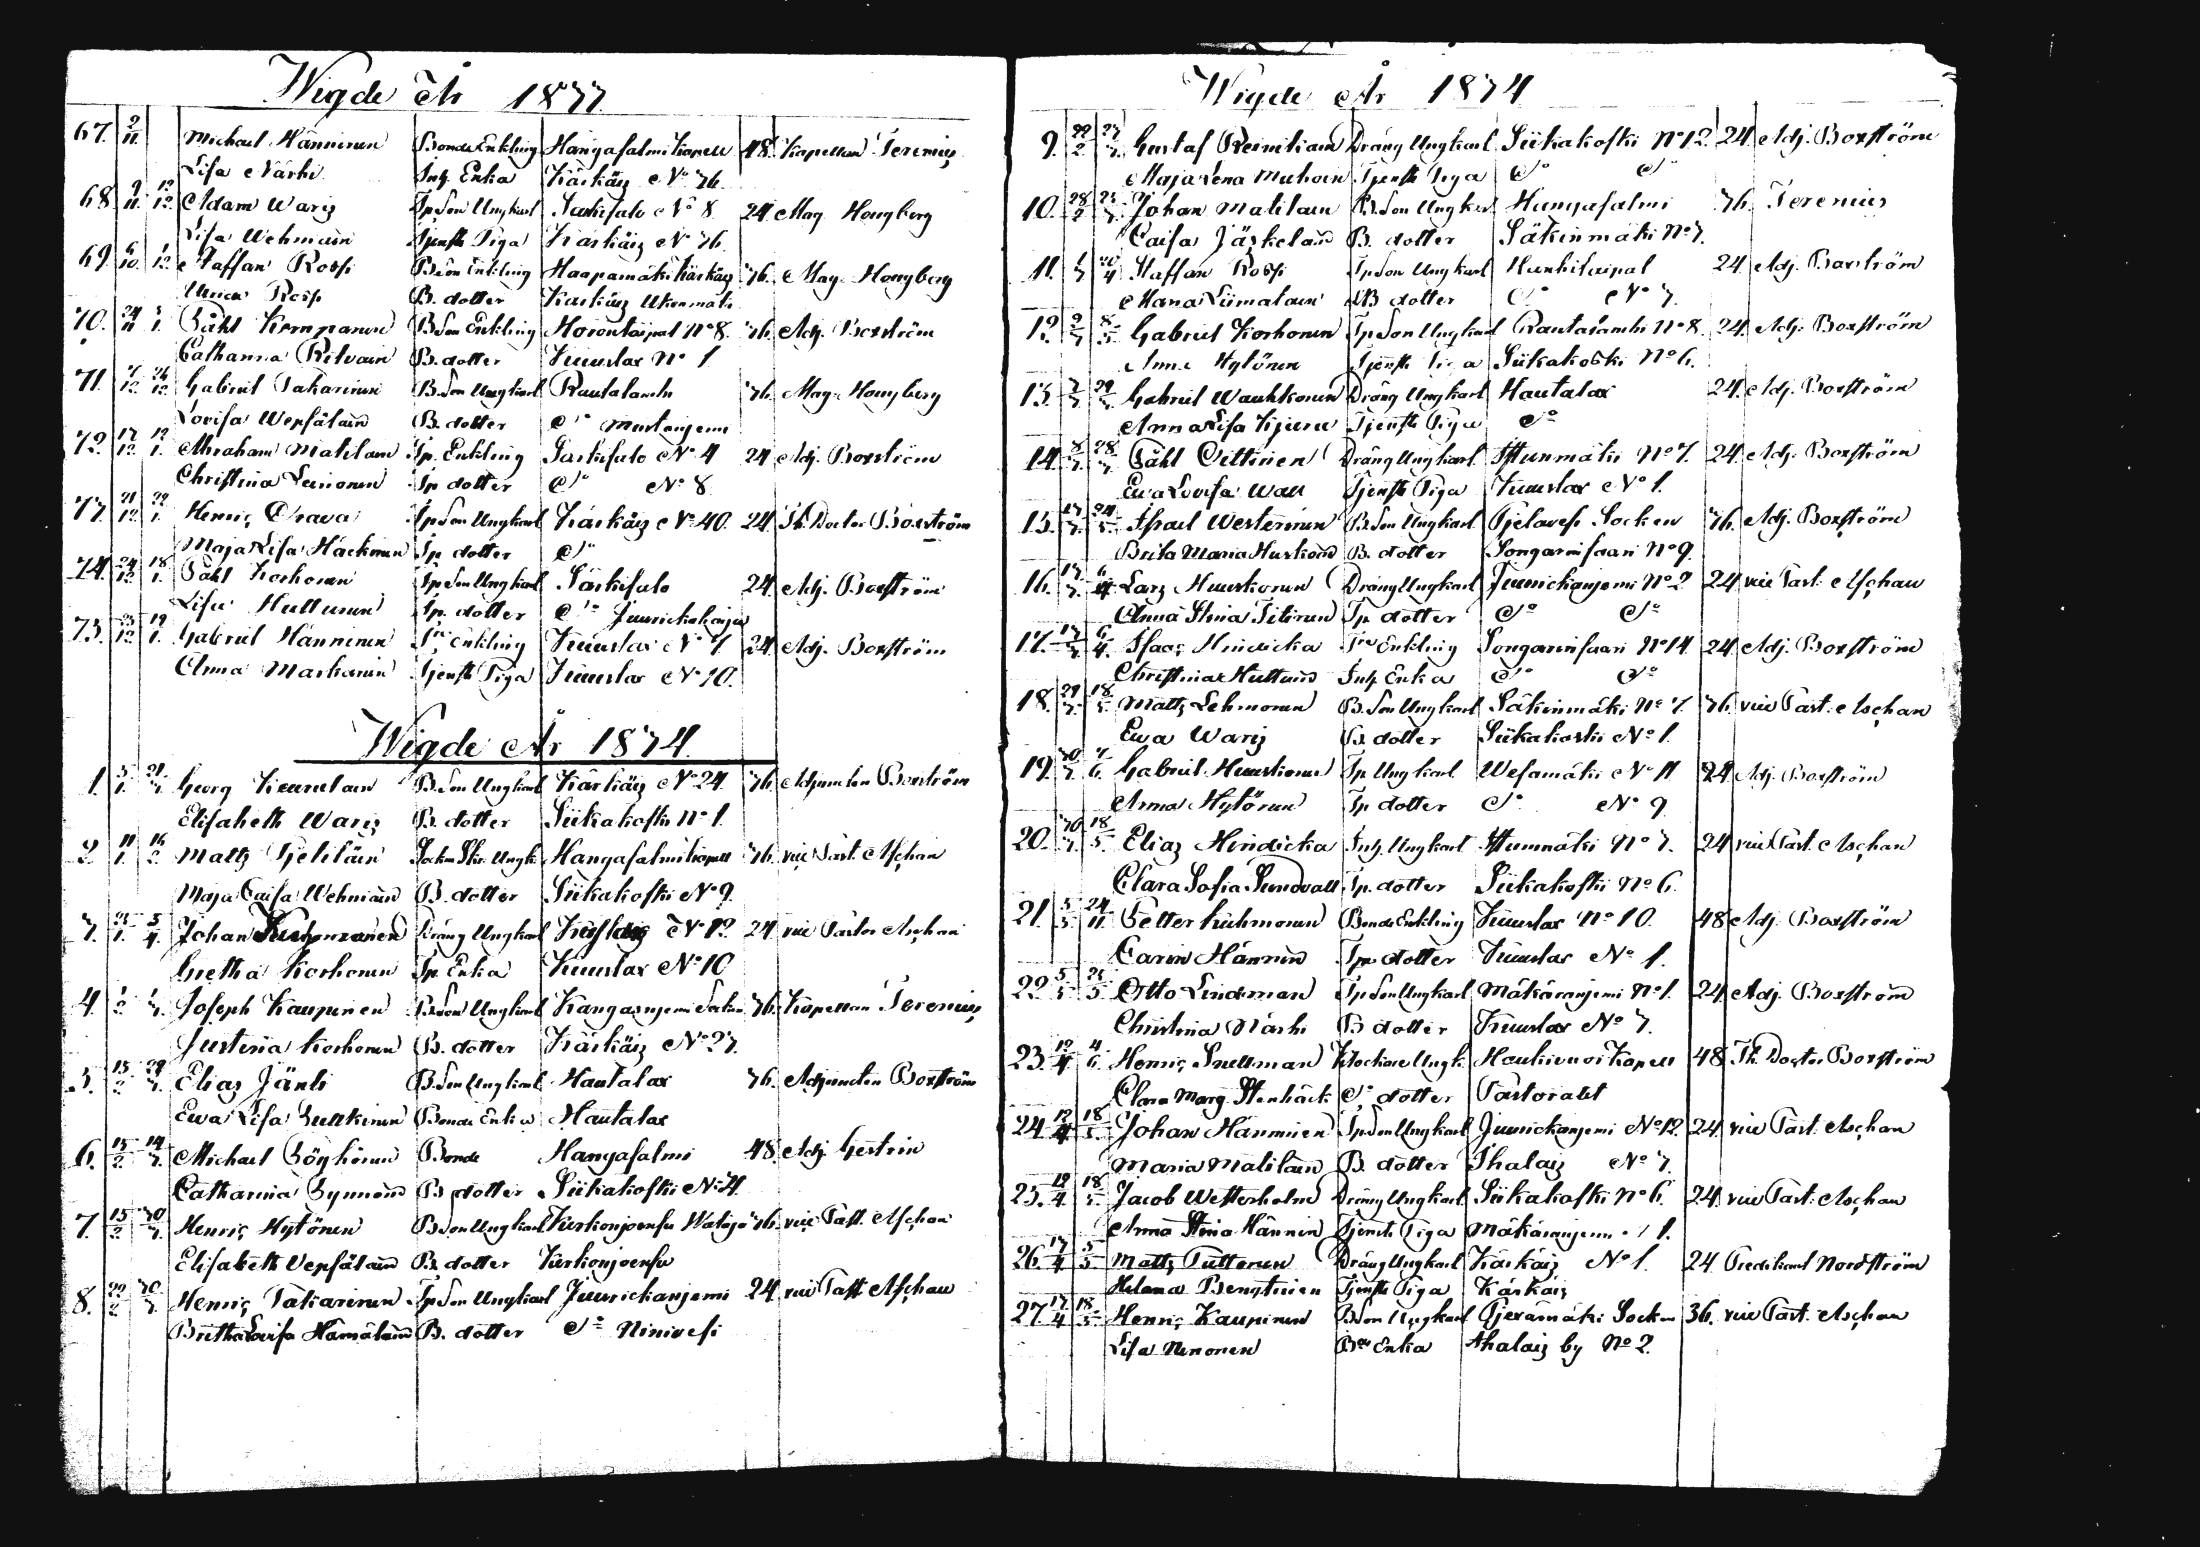 Wigde År 1833
67. 2/11 Michael Hänninen Bonde Enkling Hangasalmi Kapell 48. Kapellan Terenius
Lisa Närhi Inh. Enka Kärkäis No 36.
68 9/11 12/12 Adam Waris Tp Son Ungkarl Saikisalo No 8. 24 Mag. Hougberg
Lisa Wehmain Tjenste Piga Kärkäis No 36.
69. 6/10 1/12 Staffan Rossi B. Son Enkling Haapamäki Kärkäis 36. Mag. Hougberg
Ulrica Rossi B. dotter Kärkäis
70. 24/11 3/1 Påhl Kemppainen B Son Enkling Horontaipal No 8. 36. Adj. Boxström
Catharina Ritvain B. dotter Kuuslax No 1
71. 7/12 26/12 Gabriel Pakarinen B. Son Ungkarl Rautalambi 36. Mag. Hougberg
Lovisa Wepsäläin B. dotter Do Mustanjemi
72. 17/12 12/1 Abraham Matilain Tp. Enkling Saikisalo No 4 24 Adj. Boxström
Christina Leinonen Tp dotter Do No 8
73. 21/12 22/1 Henric Orava Tp Son Ungkarl Kärkäis No 40. 24. Ph. Doctor Boxström
Maja Lisa Häckinen Tp dotter Do
74. 24/12 18/1 Påhl Korhonen Tp Son Ungkarl Säikisalo 24. Adj. Boxström
Lisa Huttunen Tp. dotter Do
75. 23/12 19/1 Gabriel Hänninen Enkling Kuuslax No 7 24 Adj. Boxström
Anna Markanen Tjenste Piga Kuuslax No 10.
Wigde År 1834.
1. 3/1 21/3 Georg Keurulain B Son Ungkarl Kärkäis No 24. 36. Adjuncten Boxström
Elisabeth Waris B. dotter Siikakoski No 1.
2 11/1 16/2 Matts Pjeliläin Ungk. Hangasalmi Kapell 36. vice Past. Aschan
Maja Caisa Wehmain B. dotter Siikakoski No 9.
3. 21/1 3/4 Johan Dräng Ungkarl No 12 24 vice Pastor Aschan
Gretha Korhonen Tp Enka Kuuslax No 10
4. 1/2 1/3 Joseph Kauppinen B. Son Ungkarl Kangasnjemi Socken 36. Kapellan Terenius
Justina Korhonen B. dotter Kärkäis No 23.
5. 15/2 29/3 Elias Jänti B. Son Ungkarl Hautalax 36. Adjuncten Boxström
Ewa Lisa Bonde Enka Hautalax
6. 15/2 14/3 Michael Pöyhönen Bonde Hangasalmi 48. Adj. Gestrin
Catharina Pynnöin B dotter Siikakoski No 4.
7. 15/2 30/3 Henric Hytönen B Son Ungkarl Kerkonjoensu 36. vice Past. Aschan
Elisabeth Vepsäläin B. dotter Kerkonjoensu
8. 22/2 30/3 Henric Pakarinen Tp Son Ungkarl Juurickanjemi 24 vice Past Aschan
Bretha Lovisa Hämäläin B. dotter Do Ninivesi
Wigde År 1834
9. 22/2 23/3 Gustaf Reinikain Dräng Ungkarl Siikakoski No 12. 24 Adj. Boxström
Maja Lena Muhoin Tjenste Piga Do Do
10. 28/2 23/3 Johan Matilain B. Son Ungkarl Hangasalmi 36. Terenius
Caisa Jäskeläin B. dotter Säkinmäki No 3.
11. 1/3 20/4 Staffan Rossi Tp Son Ungkarl Hanhitaipal 24 Adj. Boxström
Maria Liimatain B dotter Do No 3.
12. 2/3 8/5 Gabriel Korhonen Tp Son Ungkarl Rautalambi No 8. 24. Adj. Boxström
Anna Hytönen Tjenste Piga Siikakoski No 6.
13. 2/3 29/3 Gabriel Wauhkonen Dräng Ungkarl Hautalax 24. Adj. Boxström
Anna Lisa Tjenste Piga Do
14 8/3 28/3 Påhl Oittinen Dräng Ungkarl Istunmäki No 7. 24. Adj. Boxström
Ewa Lovisa Wall Tjenste Piga Kuuslax No 1.
15. 17/3 24/5 Israel Westerinen B. Son Ungkarl Pjelaves Socken 36. Adj. Boxström
Brita Maria Huskoin B. dotter Songarinsaari No 9.
16. 17/3 6/4 Lars Huuskonen Dräng Ungkarl Juurickanjemi No 2 24 vice Past. Aschan
Anna Stina Titinen Tp dotter Do Do
17. 17/3 6/4 Isaac Hindicka Enkling Songarinsaari No 14 24 Adj. Boxström
Christina Huttuin Inh Enka Do Do
18. 29/3 18/5 Matts Lehmonen B. Son Ungkarl Säkinmäki No 7. 36. vice Past. Aschan
Ewa Waris B. dotter Siikakoski No 1.
19. 30/3 7/6 Gabriel Huuskonen Tp Ungkarl Wesamäki No 11 24 Adj. Boxström
Anna Hytönen Tp dotter Do No 9
20. 30/3 18/5 Elias Hindicka Inh. Ungkarl Istunmäki No 3. 24 vice Past. Aschan
Clara Sofia Sundvall Tp. dotter Siikakoski No 6.
21. 5/5 24/11 Petter Kuhmonen Bonde Enkling Kuuslax No 10. 48 Adj. Boxström
Carin Hännin Tp dotter Kuuslax No 1.
22. 5/5 25/5 Otto Lindeman Tp Son Ungkarl Mäkäränjemi No 1. 24 Adj. Boxström
Christina Närhi B dotter Kuuslax No 3.
23. 12/4 4/6 Henric Snellman Klockare Ungk. Haukivuori Kapell 48 Ph. Doctor Boxström
Clara Marg. Stenbäck dotter Pastoratet
24 12/4 18/5 Johan Hänninen Tp Son Ungkarl Juurickanjemi No 12. 24. vice Past. Aschan
Maria Matilain B. dotter Ihalais No 3.
25. 12/4 18/5 Jacob Wetterholm Dräng Ungkarl Siikakoski No 6. 24. vice Past. Aschan
Anna Stina Hännin Tjenste Piga Mäkäränjemi No 1.
26. 17/4 5/5 Matts Tuttunen Dräng Ungkarl Kärkäis No 1. 24 Predikant Nordström
Helena Bengtinen Tjenste Piga Kärkäis
27. 17/4 18/5 Henric Kauppinen B Son Ungkarl Pjexämäki Socken 36. vice Past. Aschan
Lisa Ninonen Enka Ahalais by No 2.